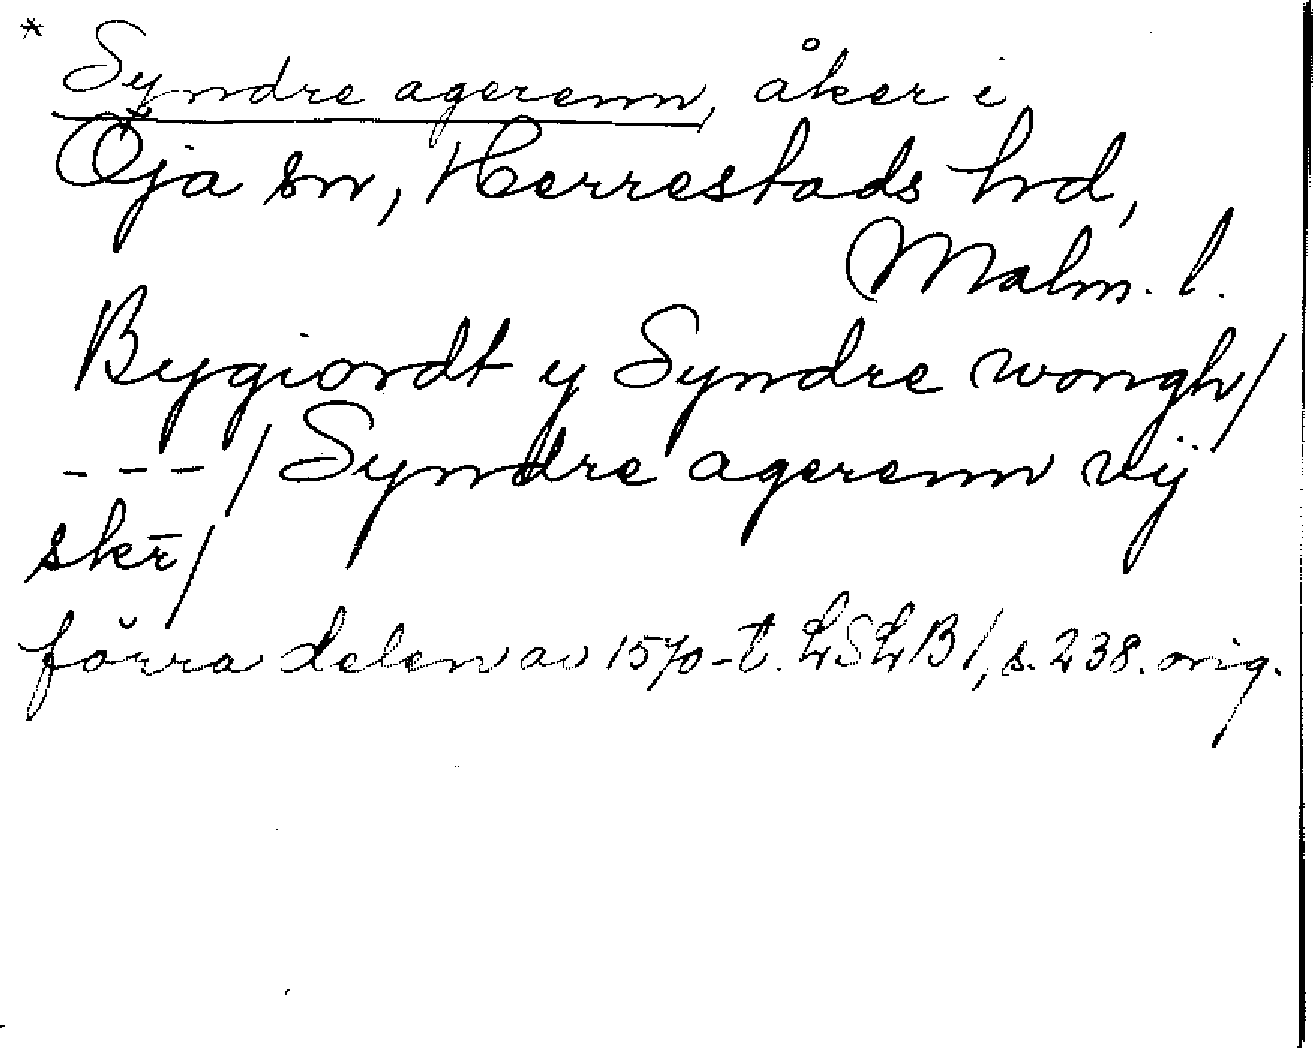 * Syndre agerenn, åker i
Öja sn, Herrestads hrd,
Malm. l.
Bygiordt y Syndre wongh/
---/ Syndre agerenn vij
skr̄/
förra delen av 1570-t. LSLB/, s. 238. orig.